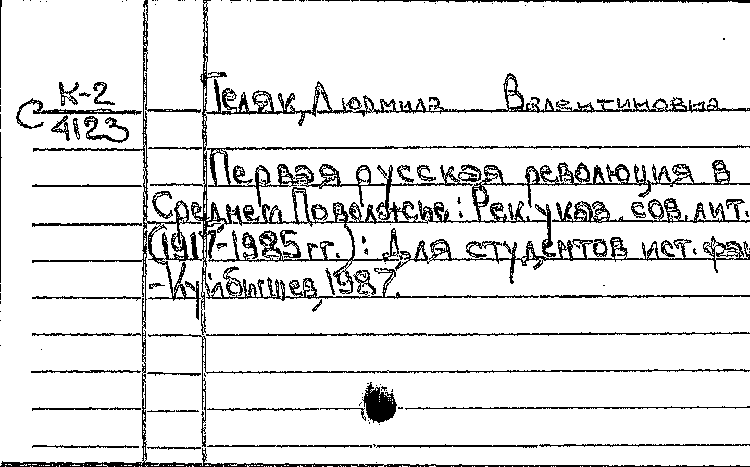 К-2
С 4123
Теляк, Людмила Валентиновна
Первая русская революция в
Среднем Поволжье: Рек. указ. сов. лит.
(1917-1985 гг.): Для студентов ист. фак
-Куйбышев, 1987.